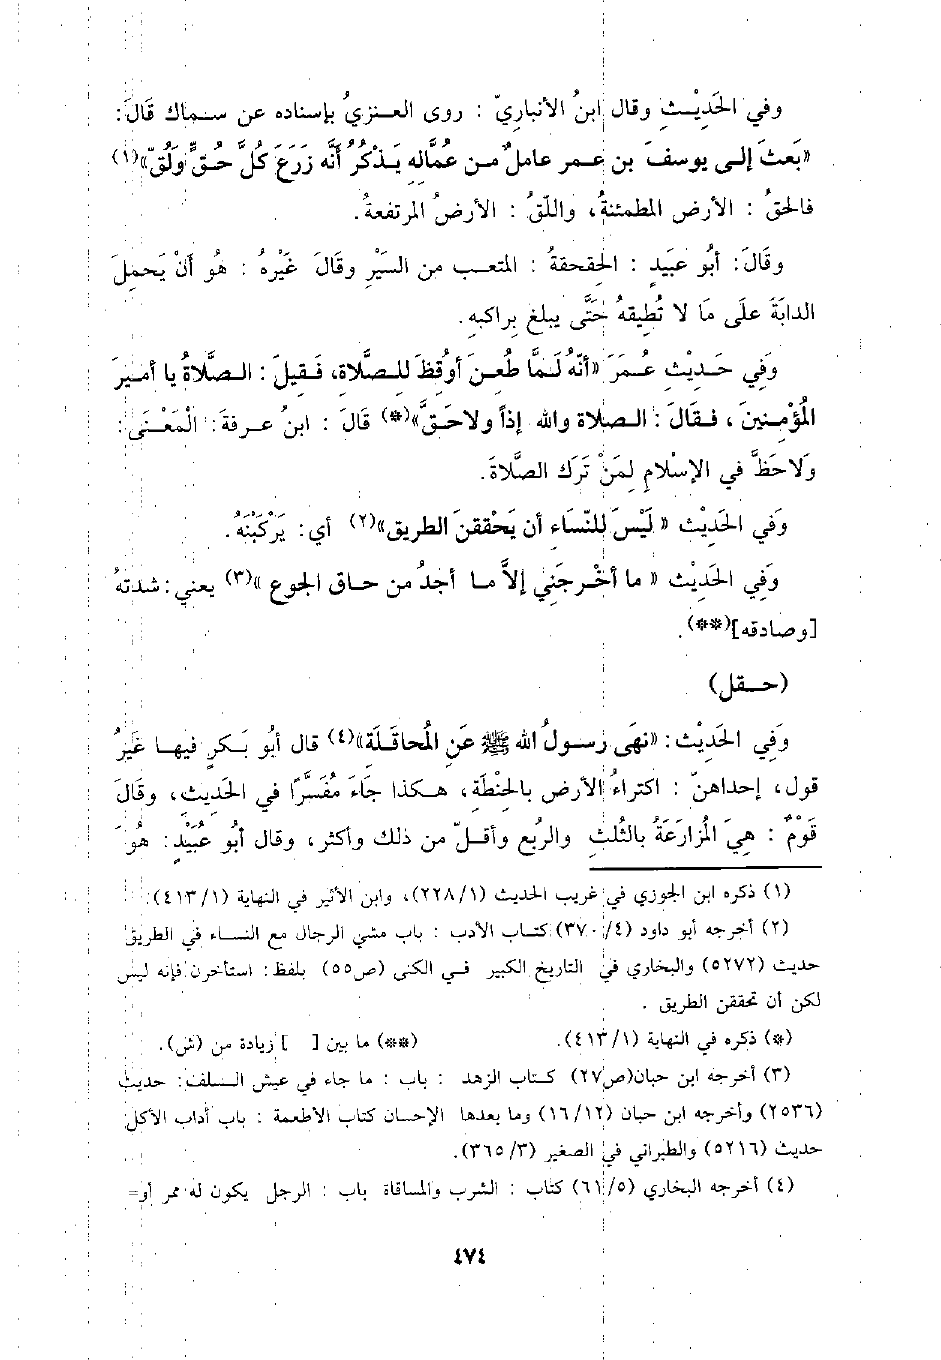 وفي الحَدِيْث وقال ابنُ الأنباريّ : روى العـنزيُ بإسناده عن سـماك قَالَ:
«بَعثَ إلى يوسفَ بن عـمر عاملٌ مـن عُمَّاله يَـذْكُرُ أنَّه زَرَعَ كُلَّ حُـقٍّ وَلُقّ»(١)
فالحقُ : الأرض المطمئنةُ، واللّقُ : الأرضُ المرتفعةُ.
وقَالَ: أبُو عبَيدٍ : الحِقحقةُ : المتعب من السيْرِ وقَالَ غَيْرهُ : هُو أنْ يَحمِلَ
الدابَةَ علَى مَا لا تُطِيقهُ حَتَّى يبلغ بِراكبهِ.
وَفِي حَـدِيْثِ عُـمَرَ «أنّهُ لَـمَّا طُعـنَ أوُقظَ للـصَّلاة، فَـقيلَ : الـصَّلاةُ يا أمـيرَ
المُؤْمِـنينَ ، فَـقَالَ : الـصلاة والله إذاً ولاحَـقَّ»(*) قَالَ : ابنُ عـرفةَ: الْمَعْـنَى:
وَلاحَظَّ في الإسْلامِ لمَنْ تَرَك الصَّلاةَ.
وَفي الحَدِيْث « لَيْسَ للنِّسَاء أن يَحْقُقنَ الطريق»(٢) أي: يَرْكَبْنَهُ.
وَفِي الحَدِيْث « ما أخْرجَنِي إلاَّ مـا أجدُ من حـاق الجوع »(٣) يعني: شدتهُ
[وصادقه](**).
(حـقل)
وَفِي الحَدِيْث: «نهَى رَسـولُ الله ﷺ عَنِ المُحاقَلَة»(٤) قال أبُو بَـكرٍ فيهـا غَيرُ
قول، إحداهنّ : اكتراءُ الأرض بالحِنْطَة، هـكذا جَاءَ مُفَسَّرًا في الحَديث، وقَالَ
قَوْمٌ : هِيَ المُزارَعَةُ بالثُلثِ والرُبع وأقـلّ من ذلك وأكثر، وقال أبُو عُبَيْدٍ: هُوَ
(١) ذكره ابن الجوزي في غريب الحديث (٢٢٨/١)، وابن الأثير في النهاية (٤١٣/١).
(٢) أخرجه أبو داود (٣٧٠/٤) كتـاب الأدب : باب مشي الرجال مع النساء في الطريق
حديث (٥٢٧٢) والبخاري في التاريخ الكبير فـي الكنى (ص٥٥) بلفظ: استأخرن فإنه ليس
لكن أن تحققن الطريق .
(*) ذكره في النهاية (٤١٣/١). (**) ما بين [ ] زيادة من (ش).
(٣) أخرجه ابن حبان(ص٢٧) كـتاب الزهد : باب : ما جاء في عيش السـلف: حديث
(٢٥٣٦) وأخرجه ابن حبان (١٦/١٢) وما بعدها الإحسان كتاب الأطعمة : باب أداب الأكل
حديث (٥٢١٦) والطبراني في الصغير (٣٦٥/٣).
(٤) أخرجه البخاري (٦١/٥) كتاب : الشرب والمساقاة باب : الرجل يكون له ممر أو=
٤٧٤